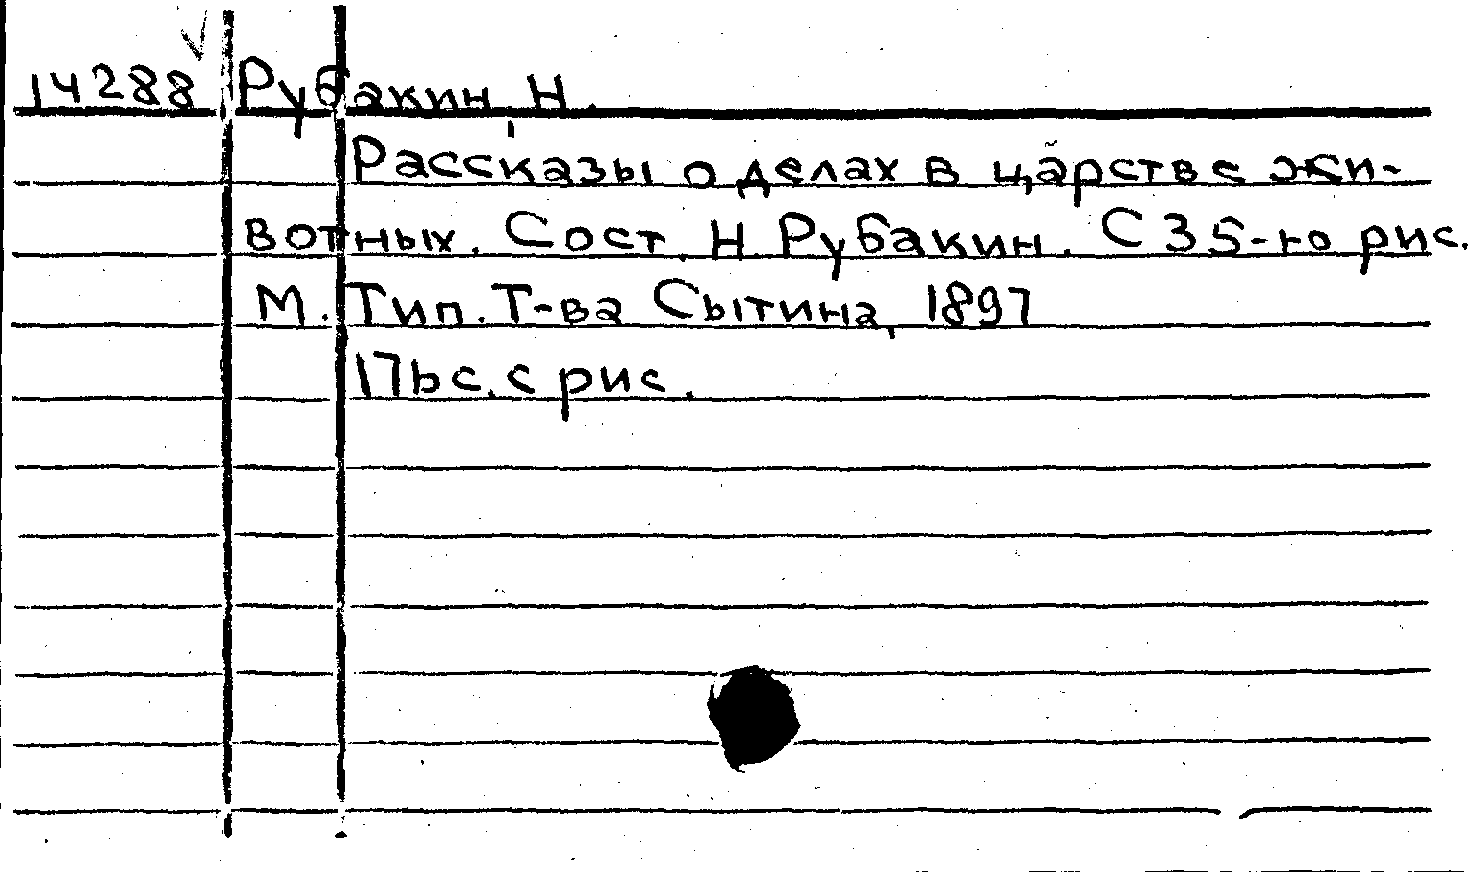 14288 Рубакин, Н.
Рассказы о делах в царстве жи-
вотных. Сост. Н. Рубакин. С 35-ю рис.
М. Тип. Т-ва Сытина, 1897
176 с. с рис.